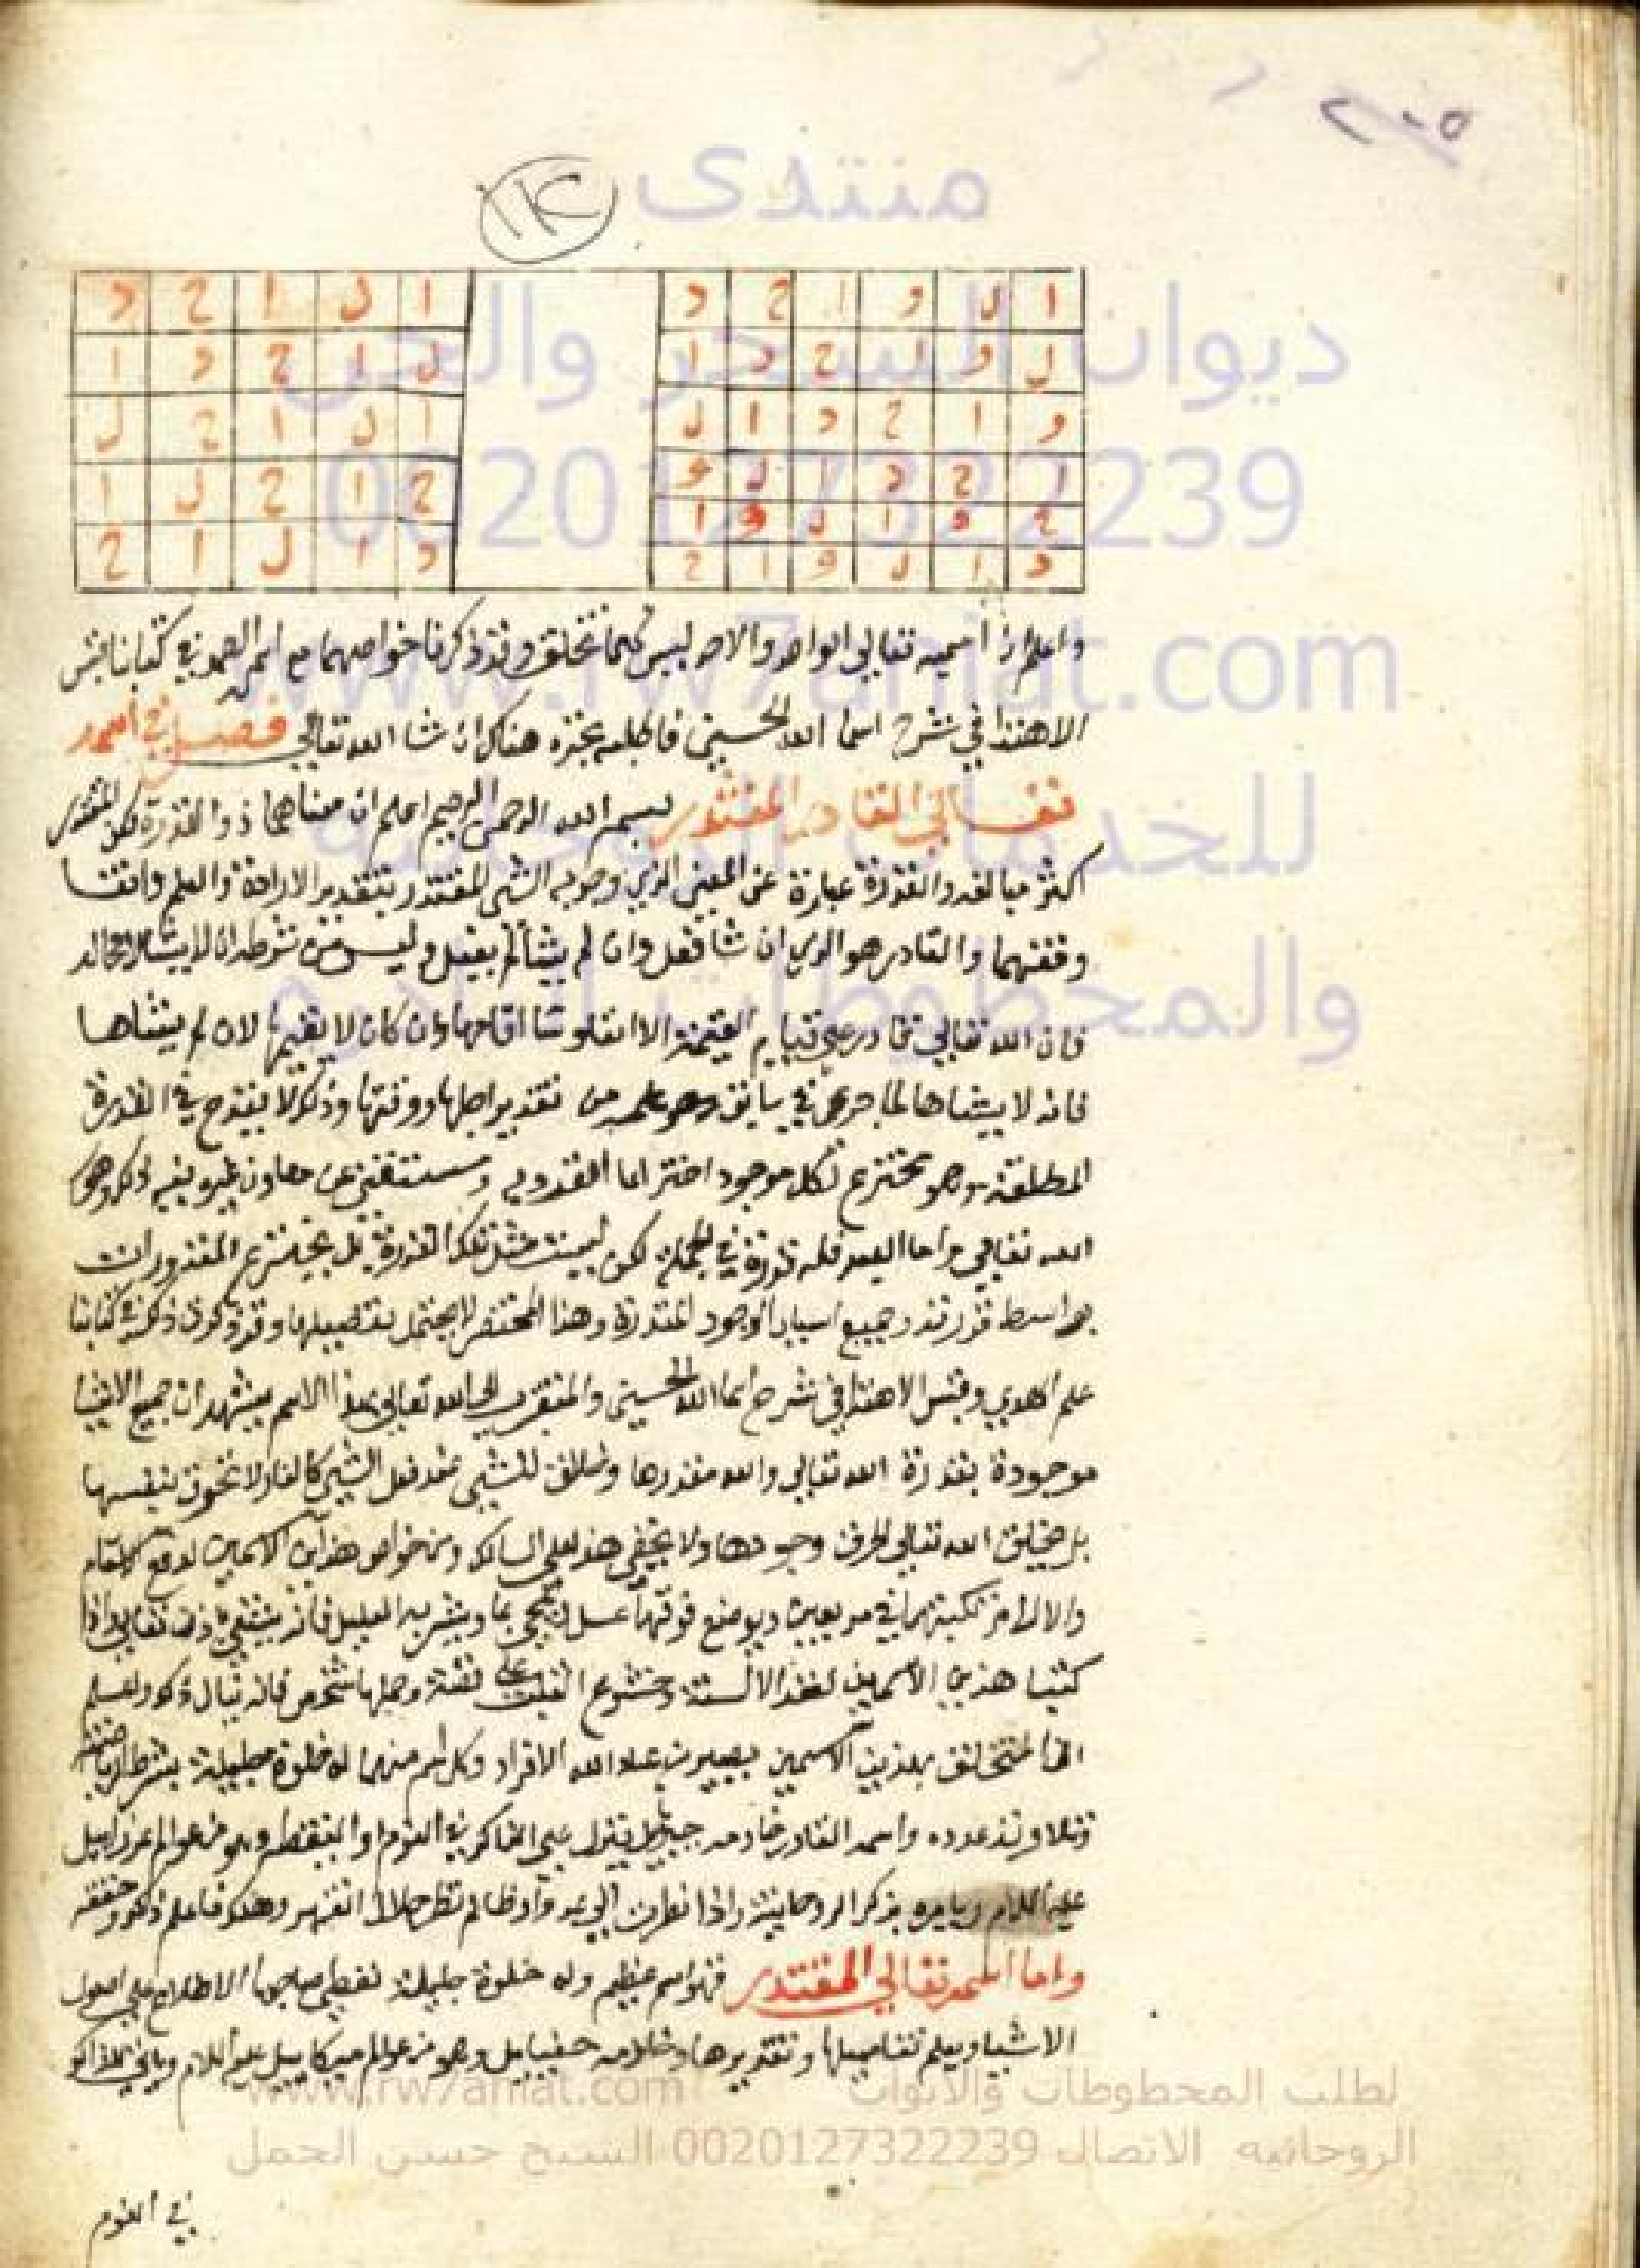 منتدى
ديوان السحر والجن
0020127322239
www.rw7aniat.com
للخدمات الروحانية
والمخطوطات النادرة
١١٢
ا ل و ا ح د
ل و ا ح د ا
و ا ح د ا ل
ا ح د ا ل و
ح د ا ل و ا
د ا ل و ا ح
ا ل ا ح د
ل ا ح د ا
ا ل ا ح ل
ح ا ح ل ا
د ا ل ا ح
واعلم ان اسميه تعالى الواحد والاحد ليس فيهما تخلق وقد ذكرنا خواصهما مع اسمه الصمد في كتابنا قبس
الاهتدا في شرح اسما الله الحسنى فاطلبه تجده هناك ان شا الله تعالى فصل في اسمه
تعالى القادر المقتدر بسم الله الرحمن الرحيم اعلم ان معناهما ذو القدرة لكن المقتدر
اكثر مبالغه والقدرة عبارة عن المعنى الذي يوجد به الشي المقتدر بتقدير الارادة والعلم واقفا
وفقهما والقادر هو الذي ان شا فعل وان لم يشا لم يفعل وليس من شرطه ان لا يشا لا محاله
فان الله تعالى قادر على قيام القيمة الان لو شا اقامها وان كان لا يقيمها لان لم يشاها
فانه لا يشاها لما جرى في سابق علمه من تقدير اجلها ووقتها وذلك لا يقدح في القدرة
المطلقة وهو مخترع لكل موجود اختراعا انفرد به ومستغني عن معاونة غيره فيه ذلك وهو
الله تعالى واما العبد فله قدرة في الجملة لكن ليست مثل تلك القدرة بل مخترع المقدورات
بواسطة قدرته جميع اسباب الوجود المقدرة وهذا المختصر لا يحتمل تفصيلها وقد ذكرت ذلك في كتابنا
علم الهدى وقبس الاهتدا في شرح اسما الله الحسنى والمتقرب الى الله تعالى بهذا الاسم يشهد ان جميع الاشيا
موجودة بقدرة الله تعالى والله مقدرها وخالق للشي عند فعل الشي كالنار لا تحرق بنفسها
بل يخلق الله تعالى الحرق وجودها ولا يخفى هذا على السالك ومن خواص هذين الاسمين لدفع الاسقام
والالام تكتبهما في مربعين ويوضع فوقهما عسل ثم يمحى بما ويشربه العليل فانه يشفى باذن تعالى واذا
كتبنا هذين الاسمين لعقد الالسنة وخشوع القلب على فضة وحملها شخص فانه ينال ذلك واعلم
ان المتخلق بهذين الاسمين يصير من عباد الله الافراد وكل اسم منهما له خلوة جليلة بشرط الرياضة
وتلاوته عدده واسمه القادر خادمه جبيائيل ينزل على الذاكر في النوم واليقظة وهو من عوالم عزرائيل
عليه السلام ويامره بذكر الروحانية واذا نظرت الى عدو او ظالم تظهر جلال القهر وهلك فاعلم ذلك وحققه
واما اسمه تعالى المقتدر فهو اسم عظيم وله خلوة جليلة تعطي صاحبها الاطلاع على اصول
الاشيا ويعلم تفاصيلها وتقديرها وخادمه حفيائيل وهو من عوالم ميكائيل عليه السلام وياتي للذاكر
في النوم
لطلب المخطوطات والابواب www.rw7aniat.com
الروحانيه الاتصال 0020127322239 الشيخ حسن الجمل